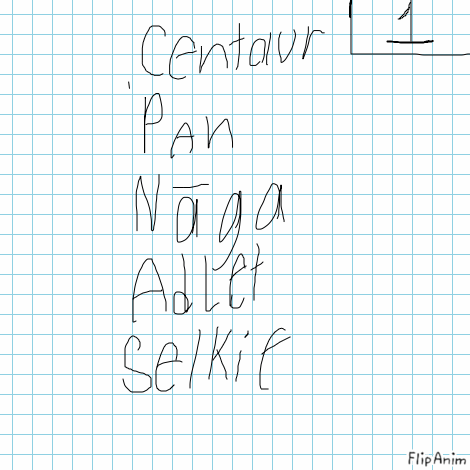 1
Centaur
Pan
Nāga
Adlet
Selkie
FlipAnim